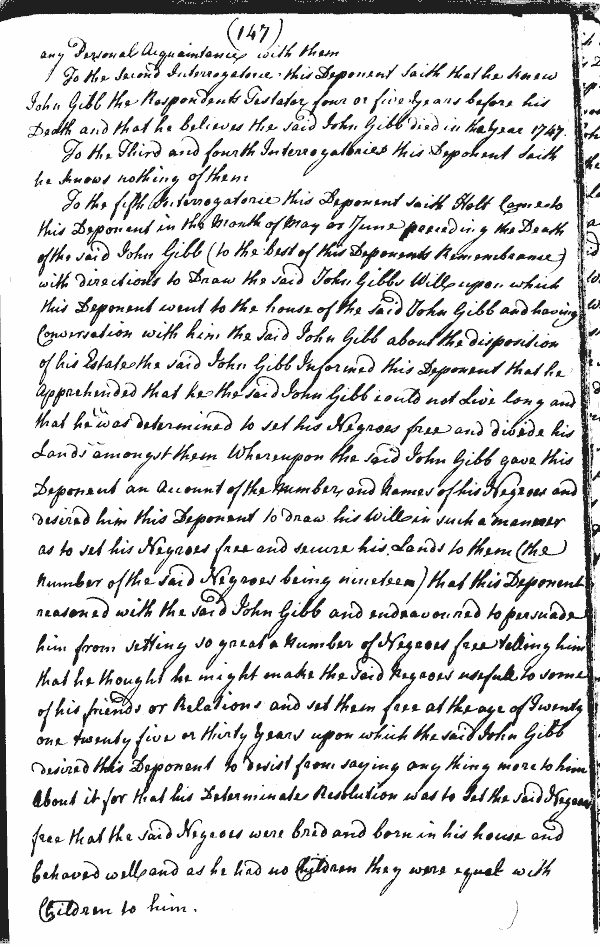 (147)
any Personal Acquaintance with them
To the Second Interrogatorie this Deponent Saith that he knew
John Gibb the Respondents Testator four or five Years before his
Death and that he believes the said John Gibb died in the Year 1747.
To the Third and fourth Interrogatories this Deponent Saith
he knows nothing of them
To the fifth Interrogatorie this Deponent saith Holt Came to
this Deponent in the Month of May or June preceeding the Death
of the said John Gibb (to the best of this Deponents Remembrance)
with directions to Draw the said John Gibbs Will upon which
this Deponent went to the house of the said John Gibb and having
Conversation with him the said John Gibb about the disposition
of his Estate the said John Gibb Informed this Deponent that he
apprehended that he the said John Gibb could not Live long and
that he was determined to set his Negroes free and divide his
Lands amongst them Whereupon the said John Gibb gave this
Deponent an Account of the Number and Names of his Negroes and
desired him this Deponent to draw his Will in such a manner
as to set his Negroes free and secure his Lands to them (the
number of the said Negroes being nineteen) that this Deponent
reasoned with the said John Gibb and endeavoured to persuade
him from setting so great a Number of Negroes free telling him
that he thought he might make the said Negroes usefull to some
of his friends or Relations and set them free at the age of Twenty
one twenty five or thirty Years upon which the said John Gibb
desired this Deponent to desist from saying any thing more to him
about it for that his Determinate Resolution was to set the said Negroes
free that the said Negroes were bred and born in his house and
behaved well and as he had no Children they were equal with
Children to him.